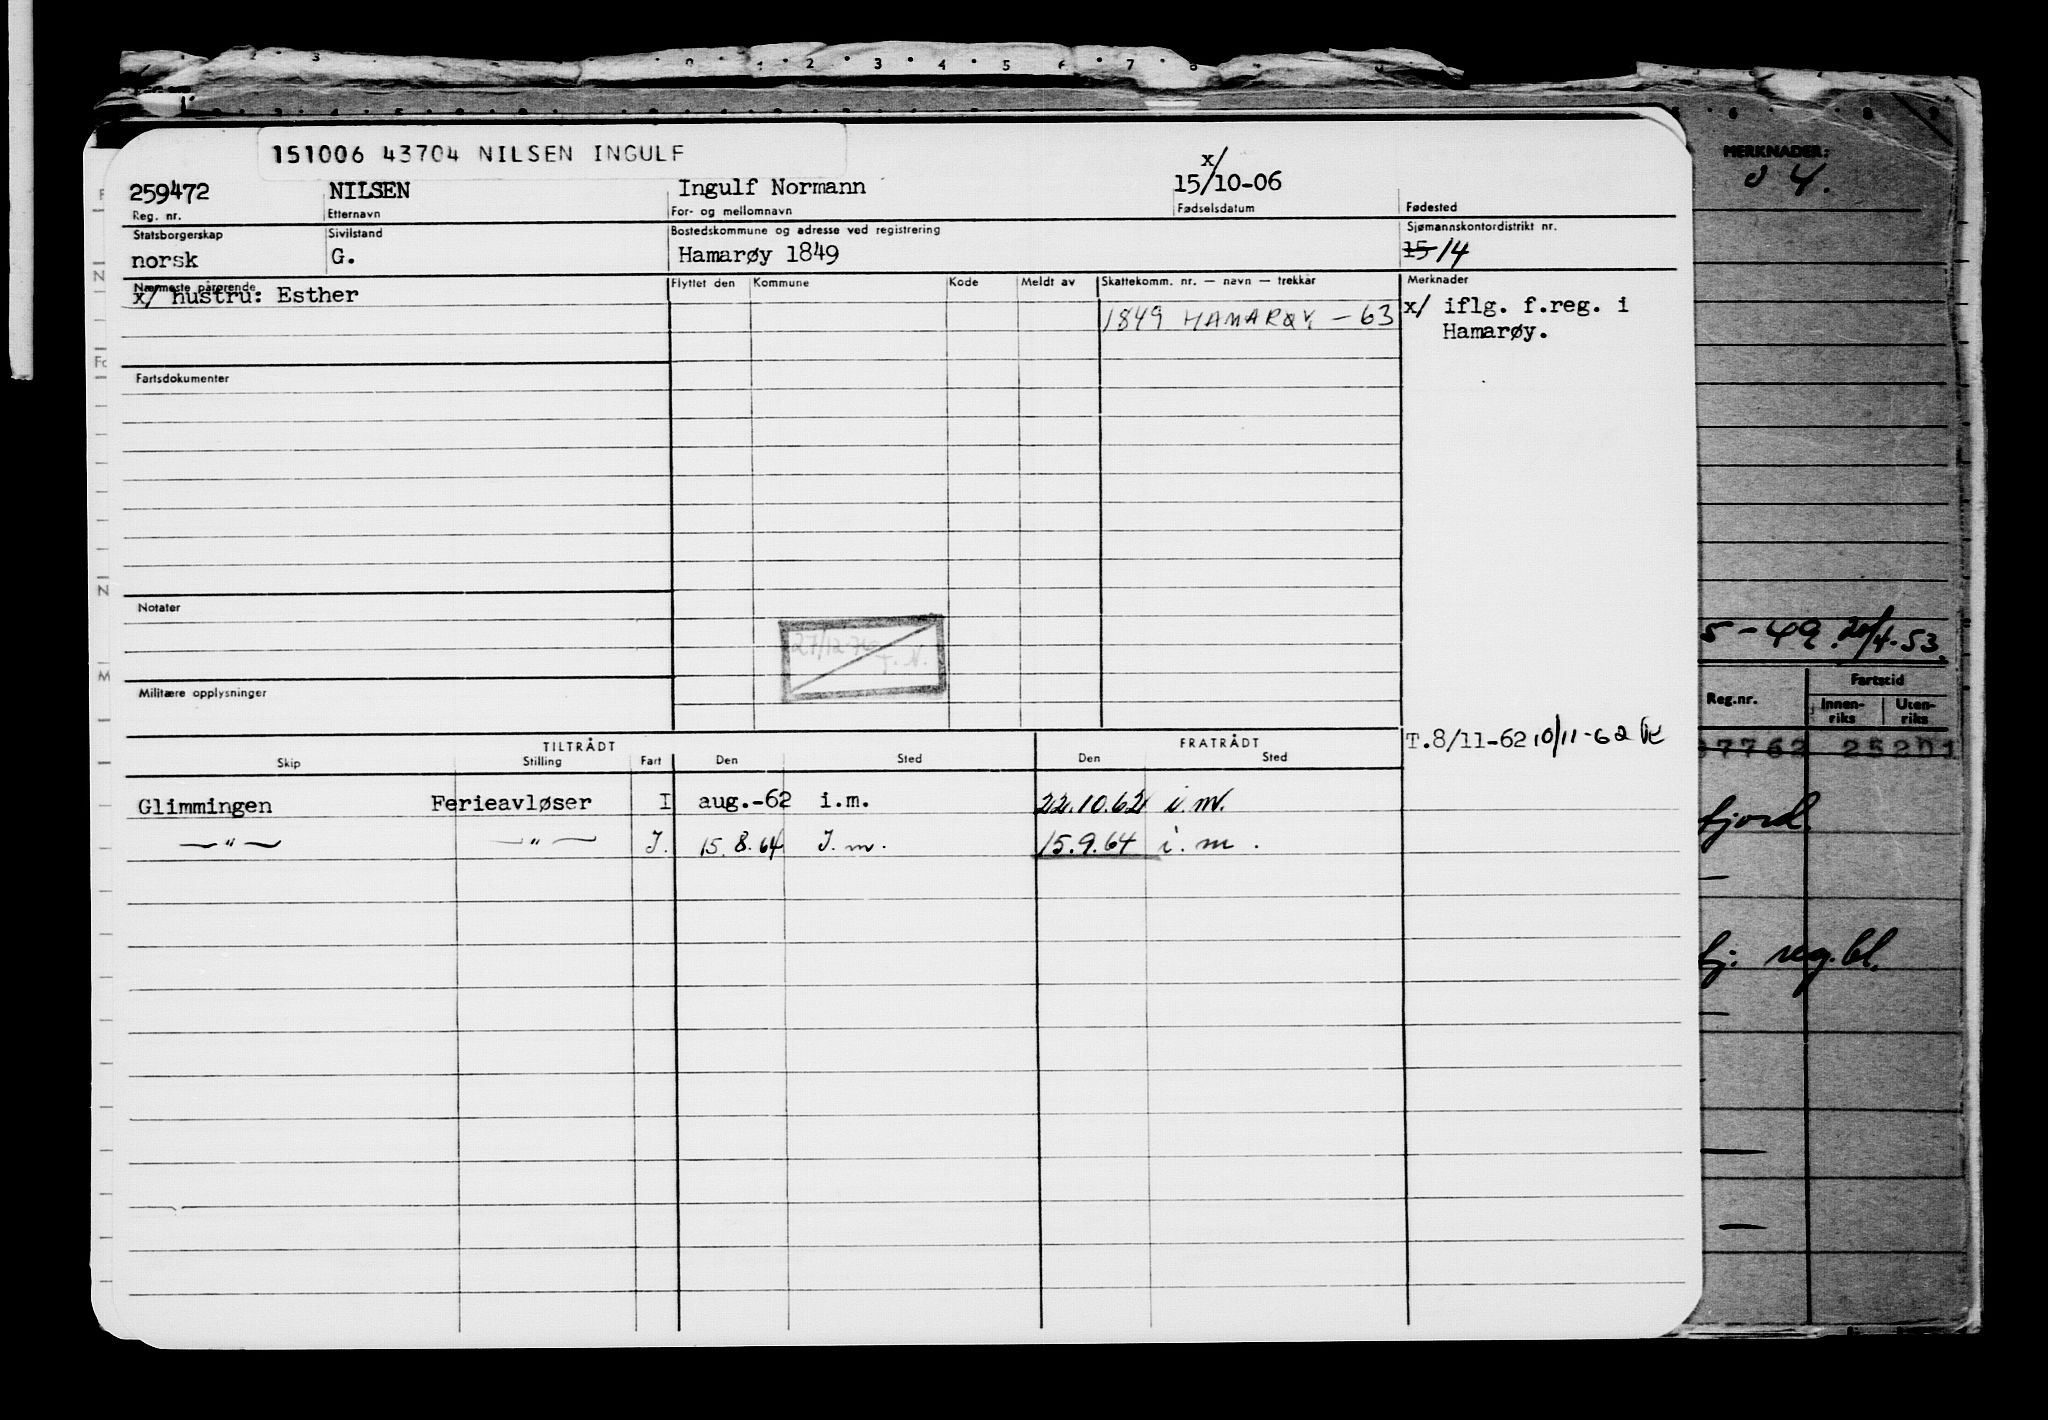 151006 43704 NILSEN INGULF
259472 NILSEN Ingulf Normann x/ 15/10-06
Reg. nr. Etternavn For- og mellomnavn Fødselsdatum Fødested
Statsborgerskap Sivilstand Bostedskommune og adresse ved registrering Sjømannskontordistrikt nr.
norsk G. Hamarøy 1849 15 14
Nærmeste pårørende Flyttet den Kommune Kode Meldt av Skattekomm. nr. — navn — trekkår Merknader
x/ hustru: Esther 1849 HAMARØY - 63 x/ iflg. f.reg. i
Hamarøy.
Fartsdokumenter
Notater
27/12-
Militære opplysninger
TILTRÅDT FRATRÅDT T.8/11-62 10/11-62
Skip Stilling Fart Den Sted Den Sted
Glimmingen Ferieavløser I aug.-62 i.m. 22.10.62 i.m.
—"— —"— I. 15.8.64 I.m. 15.9.64 i.m.
MERKNADER:
5-49. 20/4-53.
Reg.nr. Fartstid
Innenriks Utenriks
7762 25201
fjord.
fj. reg.bl.